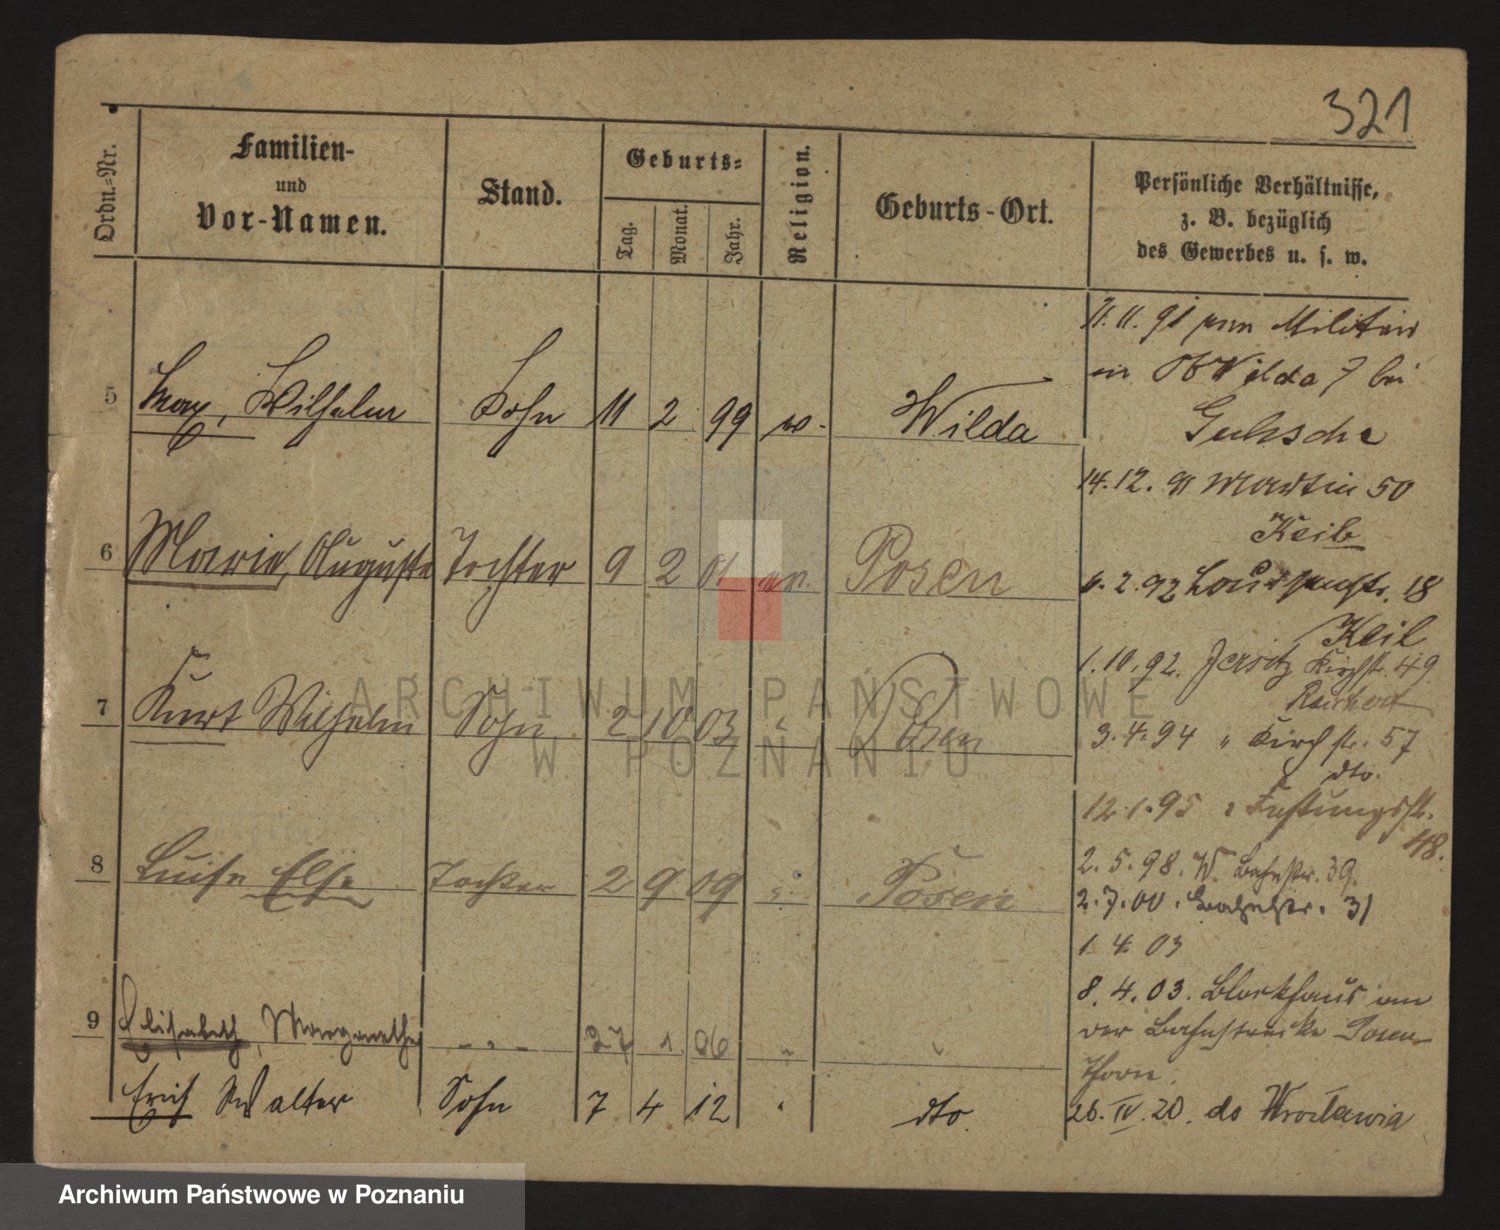 321
Ordn.-Nr.
Familien-
und
Vor-Namen.
Stand.
Geburts-
Tag.
Monat.
Jahr.
Religion.
Geburts-Ort.
Persönliche Verhältnisse,
z. B. bezüglich
des Gewerbes u. s. w.
5 Max, Wilhelm Sohn 11 2 99 Wilda
6 Maria, Auguste Tochter 9 2 01 ev. Posen
7 Kurt Wilhelm Sohn 2 10 03 " Posen
8 Luise Else Tochter 2 9 09 " Posen
9 Elisabeth, Margarethe - " - 27 1 06 " "
Erich Walter Sohn 7 4 12 " dto.
11. 11. 91 vom Militair
in Wilda 7 bei
14. 12. 91 Martin 50
Keib
6. 2. 92 18
Keil
1. 10. 92. Jersitz Kirchstr. 49
Reichert
3. 4. 94 " Kirchstr. 57
dto.
12. 1. 95 " Festungsstr.
48.
2. 5. 98. W. Bahnstr. 39.
2. 7. 00. Bahnstr. 31
1 4 03
8. 4. 03. Blockhaus an
der Bahnstrecke Posen-
Thorn.
26. IV. 20. do Wrocławia
ARCHIWUM PAŃSTWOWE
W POZNANIU
Archiwum Państwowe w Poznaniu